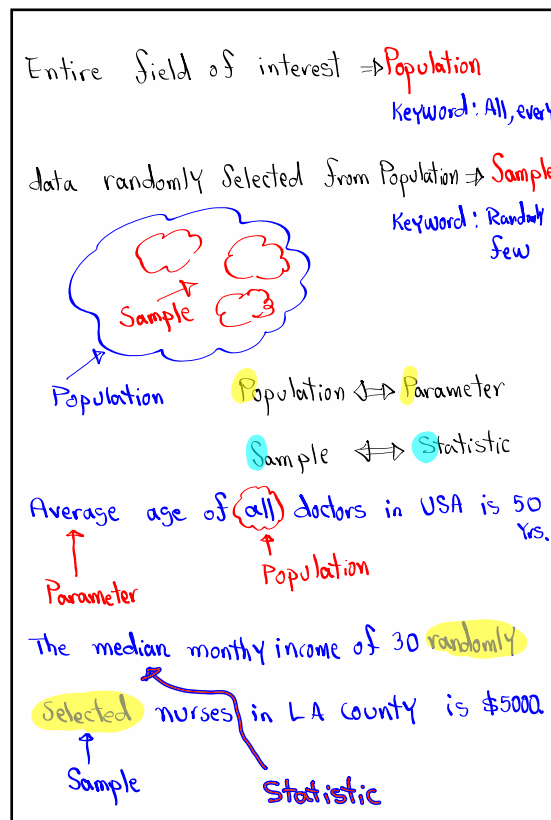 Entire field of interest ⇒ Population
Keyword: All, every
data randomly Selected from Population ⇒ Sample
Keyword: Randomly
few
Sample
Population
Population ⇔ Parameter
Sample ⇔ Statistic
Average age of all doctors in USA is 50
Yrs.
Population
Parameter
The median monthy income of 30 randomly
Selected nurses in LA county is $5000.
Sample
Statistic